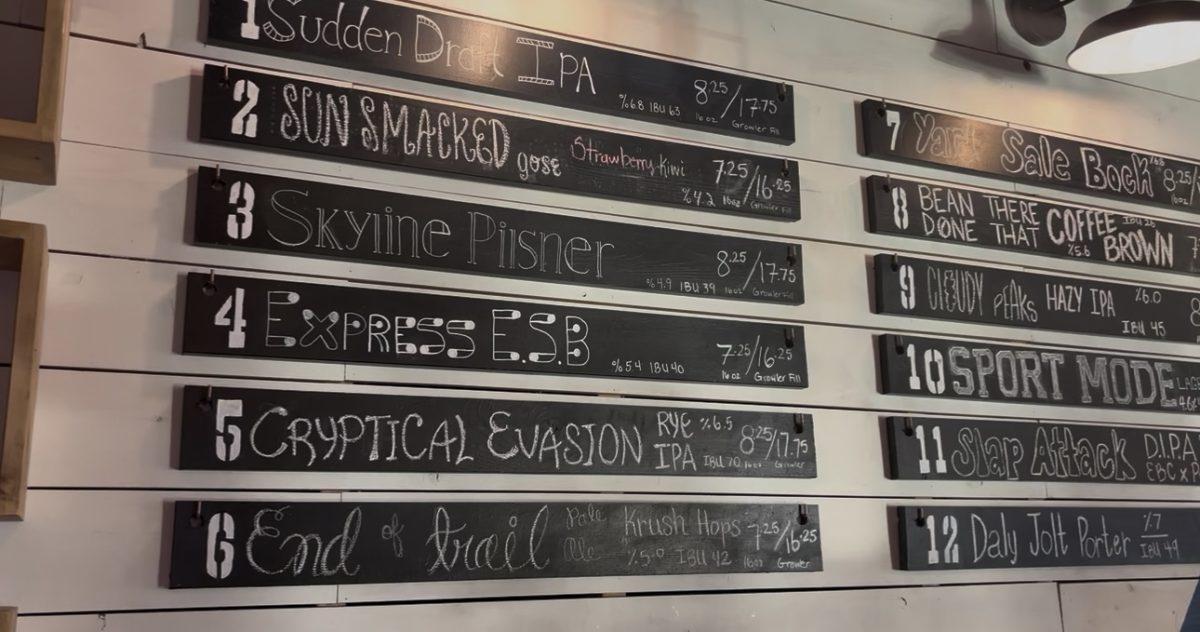 1 Sudden Draft IPA %6.8 IBU 63 8.25/17.75 16oz Growler Fill
2 SUN SMACKED gose Strawberry-Kiwi %4.2 7.25/16.25 16oz Growler Fill
3 Skyline Pilsner %4.9 IBU 39 8.25/17.75 16oz Growler Fill
4 EXPRESS E.S.B %5.4 IBU 40 7.25/16.25 16oz Growler Fill
5 CRYPTICAL EVASION RYE IPA %6.5 IBU 70 8.25/17.75 16oz Growler
6 End of trail Pale Ale Krush Hops %5.0 IBU 42 7.25/16.25 16oz Growler
7 Yard Sale Bock 8.25/
8 BEAN THERE DONE THAT COFFEE BROWN %5.6
9 CLOUDY PEAKS HAZY IPA %6.0 IBU 45
10 SPORT MODE
11 Slap Attack D.I.P.A
12 Daly Jolt Porter %7 IBU 49